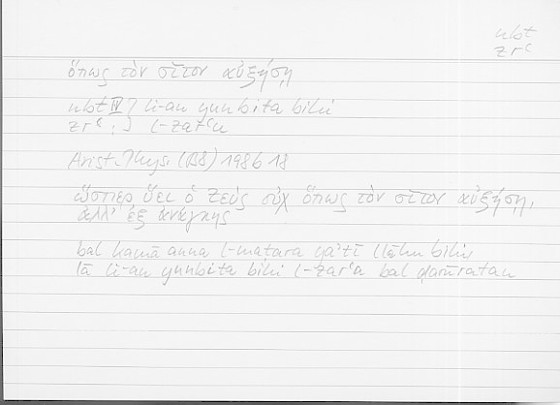 nbt
zrʿ
ὅπως τὸν σῖτον αὐξήσῃ
nbt IV } li-an yunbita bihi
zrʿ : } l-zarʿu
Arist. Phys. (B8) 198b18
ὥσπερ ὕει ὁ Ζεὺς οὐχ ὅπως τὸν σῖτον αὐξήσῃ,
ἀλλ' ἐξ ἀνάγκης
bal kamā anna l-matara yaʾtī llāhu bihi,
lā li-an yunbita bihi l-zarʿa bal ḍarūratan